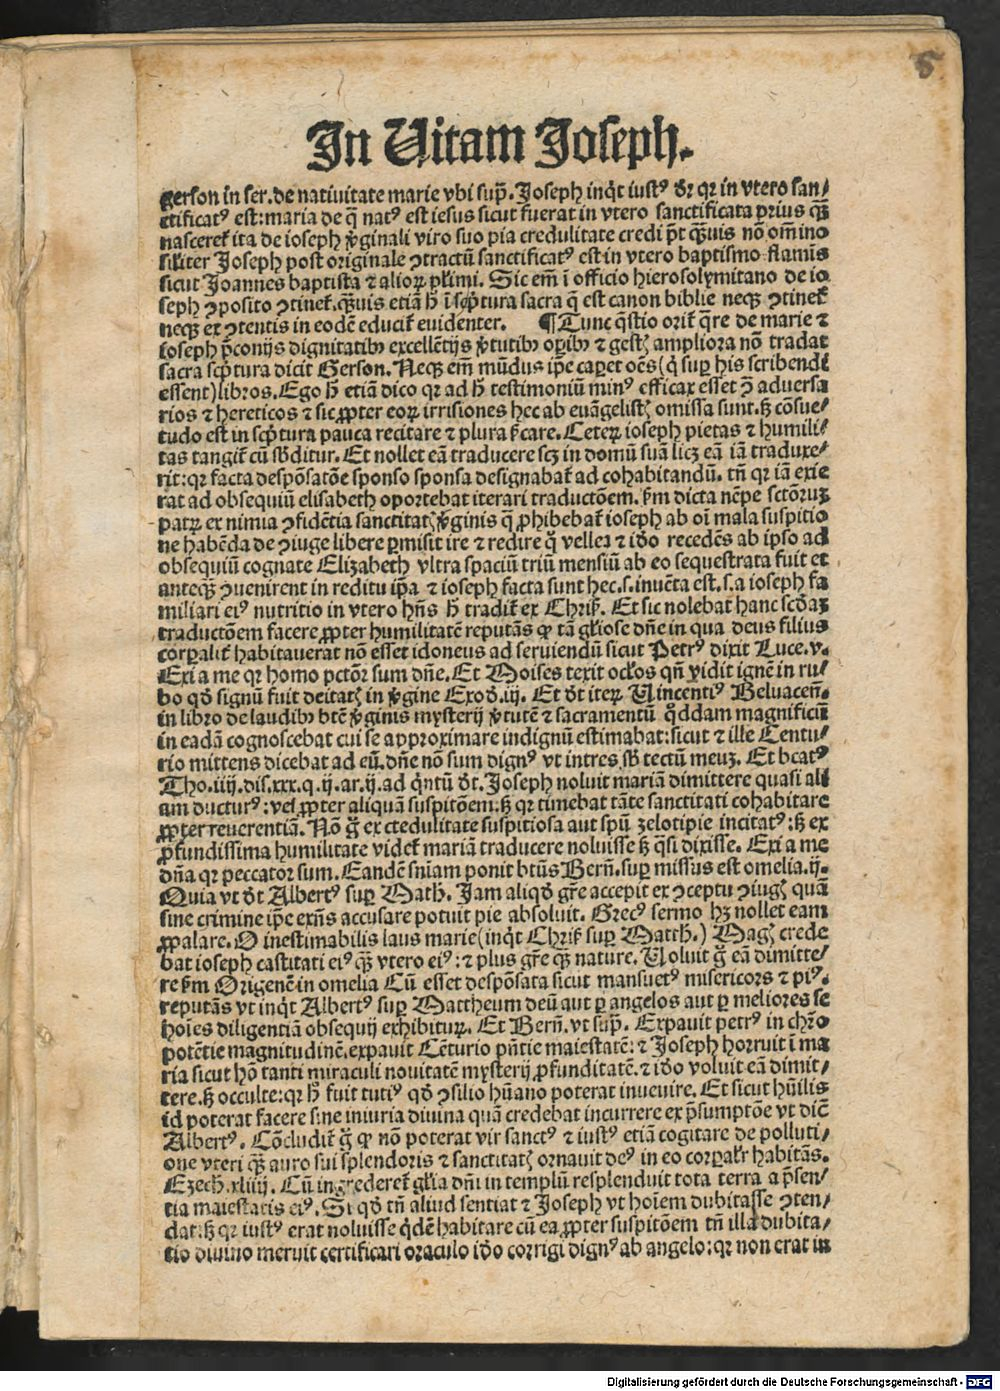 5
In Uitam Joseph.
gerson in ser. de natiuitate marie vbi sup̄. Joseph inq̇t iustꝰ dr̄ qꝛ in vtero san⸗
ctificatꝰ est: maria de q̄ natꝰ est iesus sicut fuerat in vtero sanctificata prius qꝫ
nasceret᷑ ita de ioseph v̓ginali viro suo pia credulitate credi p̄t qꝫuis nō om̄ino
siliter Joseph post originale ꝯtractū sanctificatꝰ est in vtero baptismo flamīs
sicut Joannes baptista ⁊ alioꝝ plīmi. Sic em̄ ī officio hierosolymitano de io
seph ꝯposito ꝯtinet᷑. qꝫuis etiā h̄ ī sc̓ptura sacra q̄ est canon biblie neqꝫ ꝯtinet᷑
neqꝫ ex ꝯtentis in eodē educit᷑ euidenter. ¶ Tunc q̄stio orit᷑ q̄re de marie ⁊
ioseph p̄conijs dignitatibꝫ excellētijs v̓tutibꝫ oꝑibꝫ ⁊ gestꝭ ampliora nō tradat
sacra sc̓ptura dicit Gerson. Neqꝫ em̄ mūdus ip̄e caperet oēs (q̇ suꝑ his scribendi
essent) libros. Ego h̄ etiā dico qꝛ ad h̄ testimoniū minꝰ efficax esset ꝯ̄ aduersa
rios ⁊ hereticos ⁊ sic ꝓpter eoꝝ irrisiones hec ab euāgelistꝭ omissa sunt. sꝫ cōsue⸗
tudo est in sc̓ptura pauca recitare ⁊ plura v̓care. Ceteꝝ ioseph pietas ⁊ humili⸗
tas tangit᷑ cū sb̄ditur. Et nollet eā traducere scꝫ in domū suā licꝫ eā iā traduxe⸗
rit: qꝛ facta despōsatōe sponso sponsa designabat᷑ ad cohabitandū. tn̄ qꝛ iā exie
rat ad obsequiū elisabeth oportebat iterari traductōem. ẜm dicta nēpe sctōruꝫ
patꝝ ex nimia ꝯfidētia sanctitatꝭ v̓ginis q̄ ꝓhibebat᷑ ioseph ab oī mala suspitio
ne habēda de ꝯiuge libere ꝑmisit ire ⁊ redire q̊ vellet ⁊ iđo recedēs ab ipso ad
obsequiū cognate Elizabeth vltra spaciū triū mensiū ab eo sequestrata fuit et
anteqꝫ ꝯuenirent in reditu ip̄a ⁊ ioseph facta sunt hec. s. inuēta est. s. a ioseph fa
miliari eiꝰ nutritio in vtero hn̄s h̄ tradit᷑ ex Chriẜ. Et sic nolebat hanc scđaꝫ
traductōem facere ꝓpter humilitatē reputās ꝙ tā gl̓iose dn̄e in qua deus filius
corꝑalit᷑ habitauerat nō esset idoneus ad seruiendū sicut Petrꝰ dixit Luce. v.
Exi a me qꝛ homo pctōr sum dn̄e. Et Moises texit ocl̓os qn̄ vidit ignē in ru⸗
bo qđ signū fuit deitatꝭ in v̓gine Exođ. iij. Et đt iteꝝ Vincentiꝰ Beluaceñ.
in libro de laudibꝫ btē v̓ginis mysterij v̓tutē ⁊ sacramentū q̊ddam magnificū
in eadā cognoscebat cui se approximare indignū estimabat: sicut ⁊ ille Centu⸗
rio mittens dicebat ad eū. dn̄e nō sum dignꝰ vt intres sb̄ tectū meuꝫ. Et bcatꝰ
Tho. iiij. dis. xxx. q. ij. ar. ij. ad q̇ntū đt. Joseph noluit mariā dimittere quasi ali
am ducturꝰ: vel ꝓpter aliquā suspitōem: sꝫ qꝛ timebat tāte sanctitati cohabitare
ꝓpter reuerentiā. Nō ḡ ex ctedulitate suspitiosa aut spū zelotipie incitatꝰ: sꝫ ex
ꝓfundissima humilitate videt᷑ mariā traducere noluisse sꝫ q̄si dixisse. Exi a me
dn̄a qꝛ peccator sum. Eandē sn̄iam ponit btūs Berñ. suꝑ missus est omelia. ij.
Quia vt đt Albertꝰ suꝑ Math. Jam aliqđ gr̄e accepit ex ꝯceptu ꝯiugꝭ quā
sine crimine ip̄e exn̄s accusare potuit pie absoluit. Grecꝰ sermo hꝫ nollet eam
ꝓpalare. O inestimabilis laus marie (inq̇t Chriẜ suꝑ Matth.) Magꝭ crede
bat ioseph castitati eiꝰ qꝫ vtero eiꝰ: ⁊ plus gr̄e qꝫ nature. Voluit ḡ eā dimitte⸗
re ẜm Origenē in omelia Cū esset despōsata sicut mansuetꝰ misericors ⁊ piꝰ.
reputās vt inq̇t Albertꝰ suꝑ Mattheum deū aut ꝑ angelos aut ꝑ meliores se
hoīes diligentiā obsequij exhibituꝝ. Et Berñ. vt sup̄. Expauit petrꝰ in chr̄o
potētie magnitudinē. expauit Cēturio pn̄tie maiestatē: ⁊ Joseph horruit ī ma
ria sicut hō tanti miraculi nouitatē mysterij ꝓfunditatē. ⁊ iđo voluit eā dimit⸗
tere. sꝫ occulte: qꝛ h̄ fuit tutiꝰ qđ ꝯsilio hūano poterat inueuire. Et sicut hūilis
id poterat facere sine iniuria diuina quā credebat incurrere ex p̄sumptōe vt dic̄
Albertꝰ. Cōcludit᷑ ḡ ꝙ nō poterat vir sanctꝰ ⁊ iustꝰ etiā cogitare de polluti⸗
one vteri qꝫ auro sui splendoris ⁊ sanctitatꝭ ornauit deꝰ in eo corꝑalr̄ habitās.
Ezech. xliiij. Cū ingrederet᷑ gl̓ia dn̄i in templū resplenduit tota terra a p̄sen⸗
tia maiestatis eiꝰ. Si qđ tn̄ aliud sentiat ⁊ Joseph vt hoīem dubitasse ꝯten⸗
dat: sꝫ qꝛ iustꝰ erat noluisse q̇dē habitare cū ea ꝓpter suspitōem tn̄ illa dubita⸗
tio diuino meruit certificari oraculo iđo corrigi dignꝰ ab angelo: qꝛ non erat in
Digitalisierung gefördert durch die Deutsche Forschungsgemeinschaft - DFG